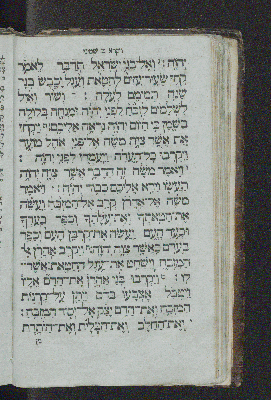 ויקרא ט שמיני
יהוה: ואל־בני ישראל תדבר לאמר
קחו שעיר־עזים לחטאת ועגל וכבש בני
שנה תמימם לעלה: ושור ואיל
לשלמים לזבח לפני יהוה ומנחה בלולה
בשמן כי היום יהוה נראה אליכם: ויקחו
את אשר צוה משה אל־פני אהל מועד
ויקרבו כל־העדה ויעמדו לפני יהוה:
ויאמר משה זה הדבר אשר צוה יהוה
תעשו וירא אליכם כבוד יהוה: ויאמר
משה אל־אהרן קרב אל־המזבח ועשה
את־חטאתך ואת־עלתך וכפר בעדך
ובעד העם ועשה את־קרבן העם וכפר
בעדם כאשר צוה יהוה: ויקרב אהרן אל־
המזבח וישחט את־עגל החטאת אשר־
לו: ויקרבו בני אהרן את־הדם אליו
ויטבל אצבעו בדם ויתן על־קרנות
המזבח ואת־הדם יצק אל־יסוד המזבח:
ואת־החלב ואת־הכלית ואת־היתרת